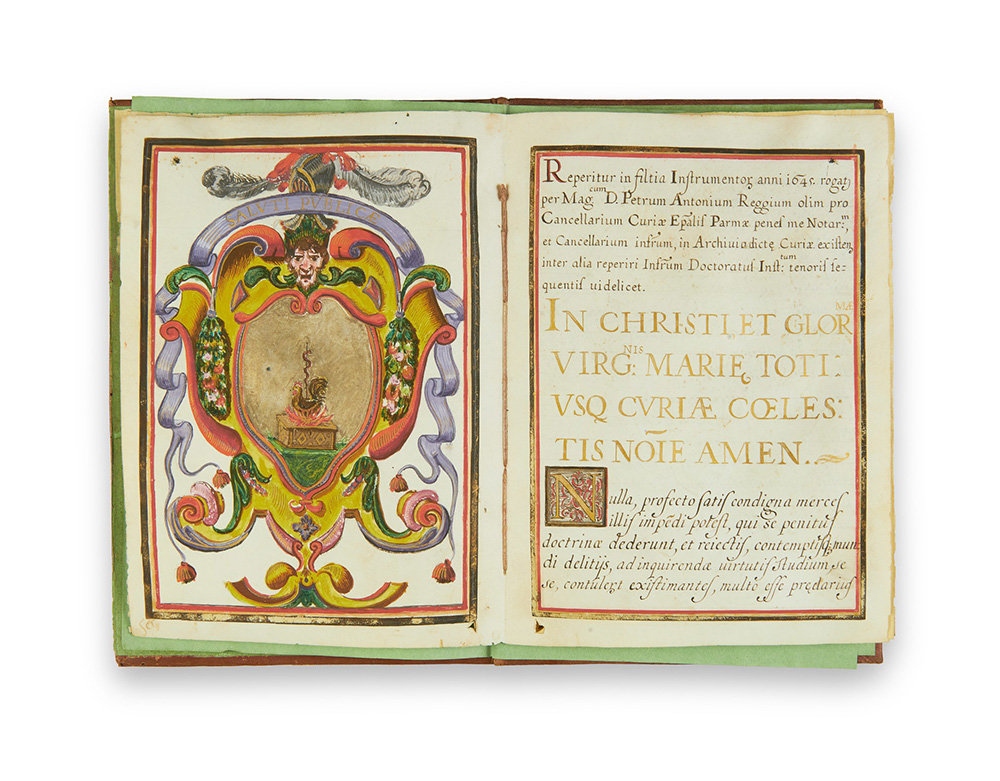 SALVTI PVBLICÆ
Reperitur in filtia Instrumentoꝝ anni 1645. rogat;
per Mag.cum D. Petrum Antonium Reggium olim pro
Cancellarium Curiæ Ep̃alis Parmæ penes me Notar:m,
et Cancellarium infrum, in Archiuio dictę Curiæ existen;
inter alia reperiri Infr̃um Doctoratus Inst:tum tenoris se-
quentis uidelicet.
IN CHRISTI, ET GLORMÆ
VIRG:NIS MARIĘ TOTI:
VSQ CVRIÆ CŒLES:
TIS NOĨE AMEN..
Nulla, profecto satis condigna merces
illis impẽdi potest, qui se penitus
doctrinæ dederunt, et reiectis, contemptisq; mun
di delitijs, ad inquirendæ uirtutis studium, se
se, contulert existimantes, multo esse prędarius